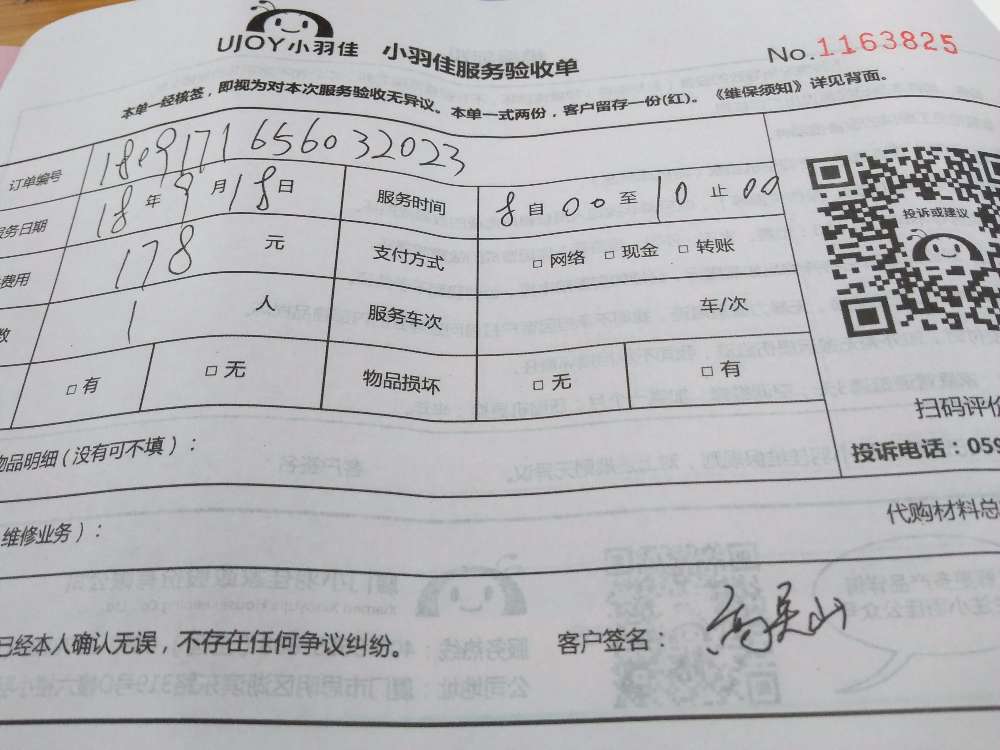 UJOY小羽佳 小羽佳服务验收单 No.1163825
本单一经核签，即视为对本次服务验收无异议。本单一式两份，客户留存一份(红)。《维保须知》详见背面。
订单编号 180917165603 2023
务日期 18年9月18日 服务时间 8自00至10止00
费用 178元 支付方式 □网络 □现金 □转账
数 1人 服务车次 车/次
□有 □无 物品损坏 □无 □有
投诉或建议
扫码评价
物品明细(没有可不填)：
投诉电话：059
维修业务)：
代购材料总
已经本人确认无误，不存在任何争议纠纷。 客户签名：